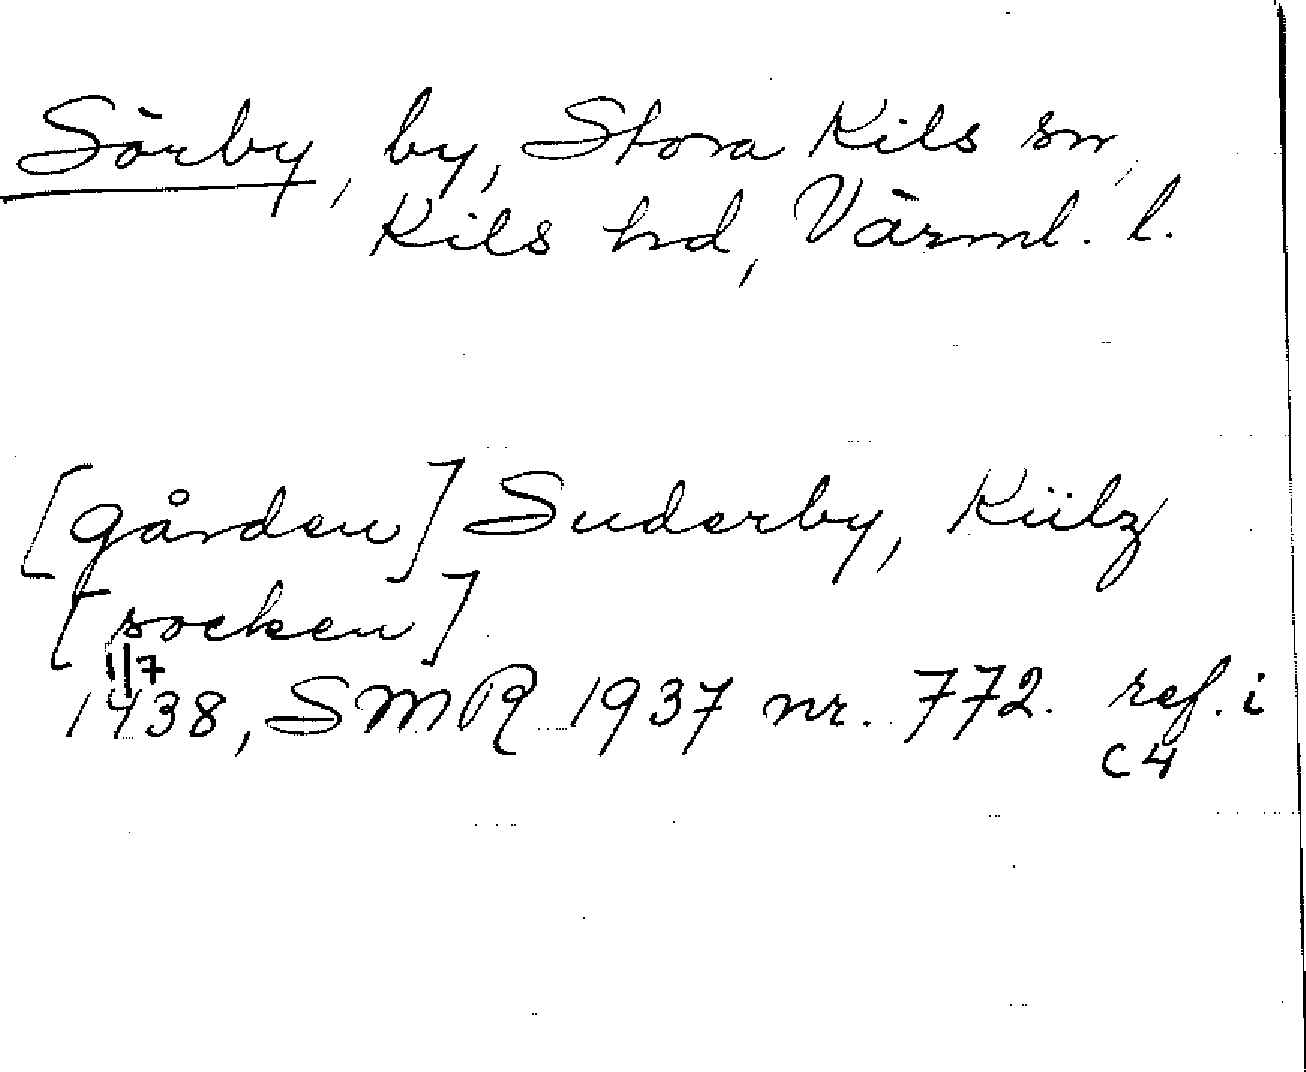 Sörby, by, Stora Kils sn,
Kils hd, Värml. l.
[gården] Suderby, Kiilz
[socken]
1/7
1438, SMR 1937 nr. 772. ref. i
C4